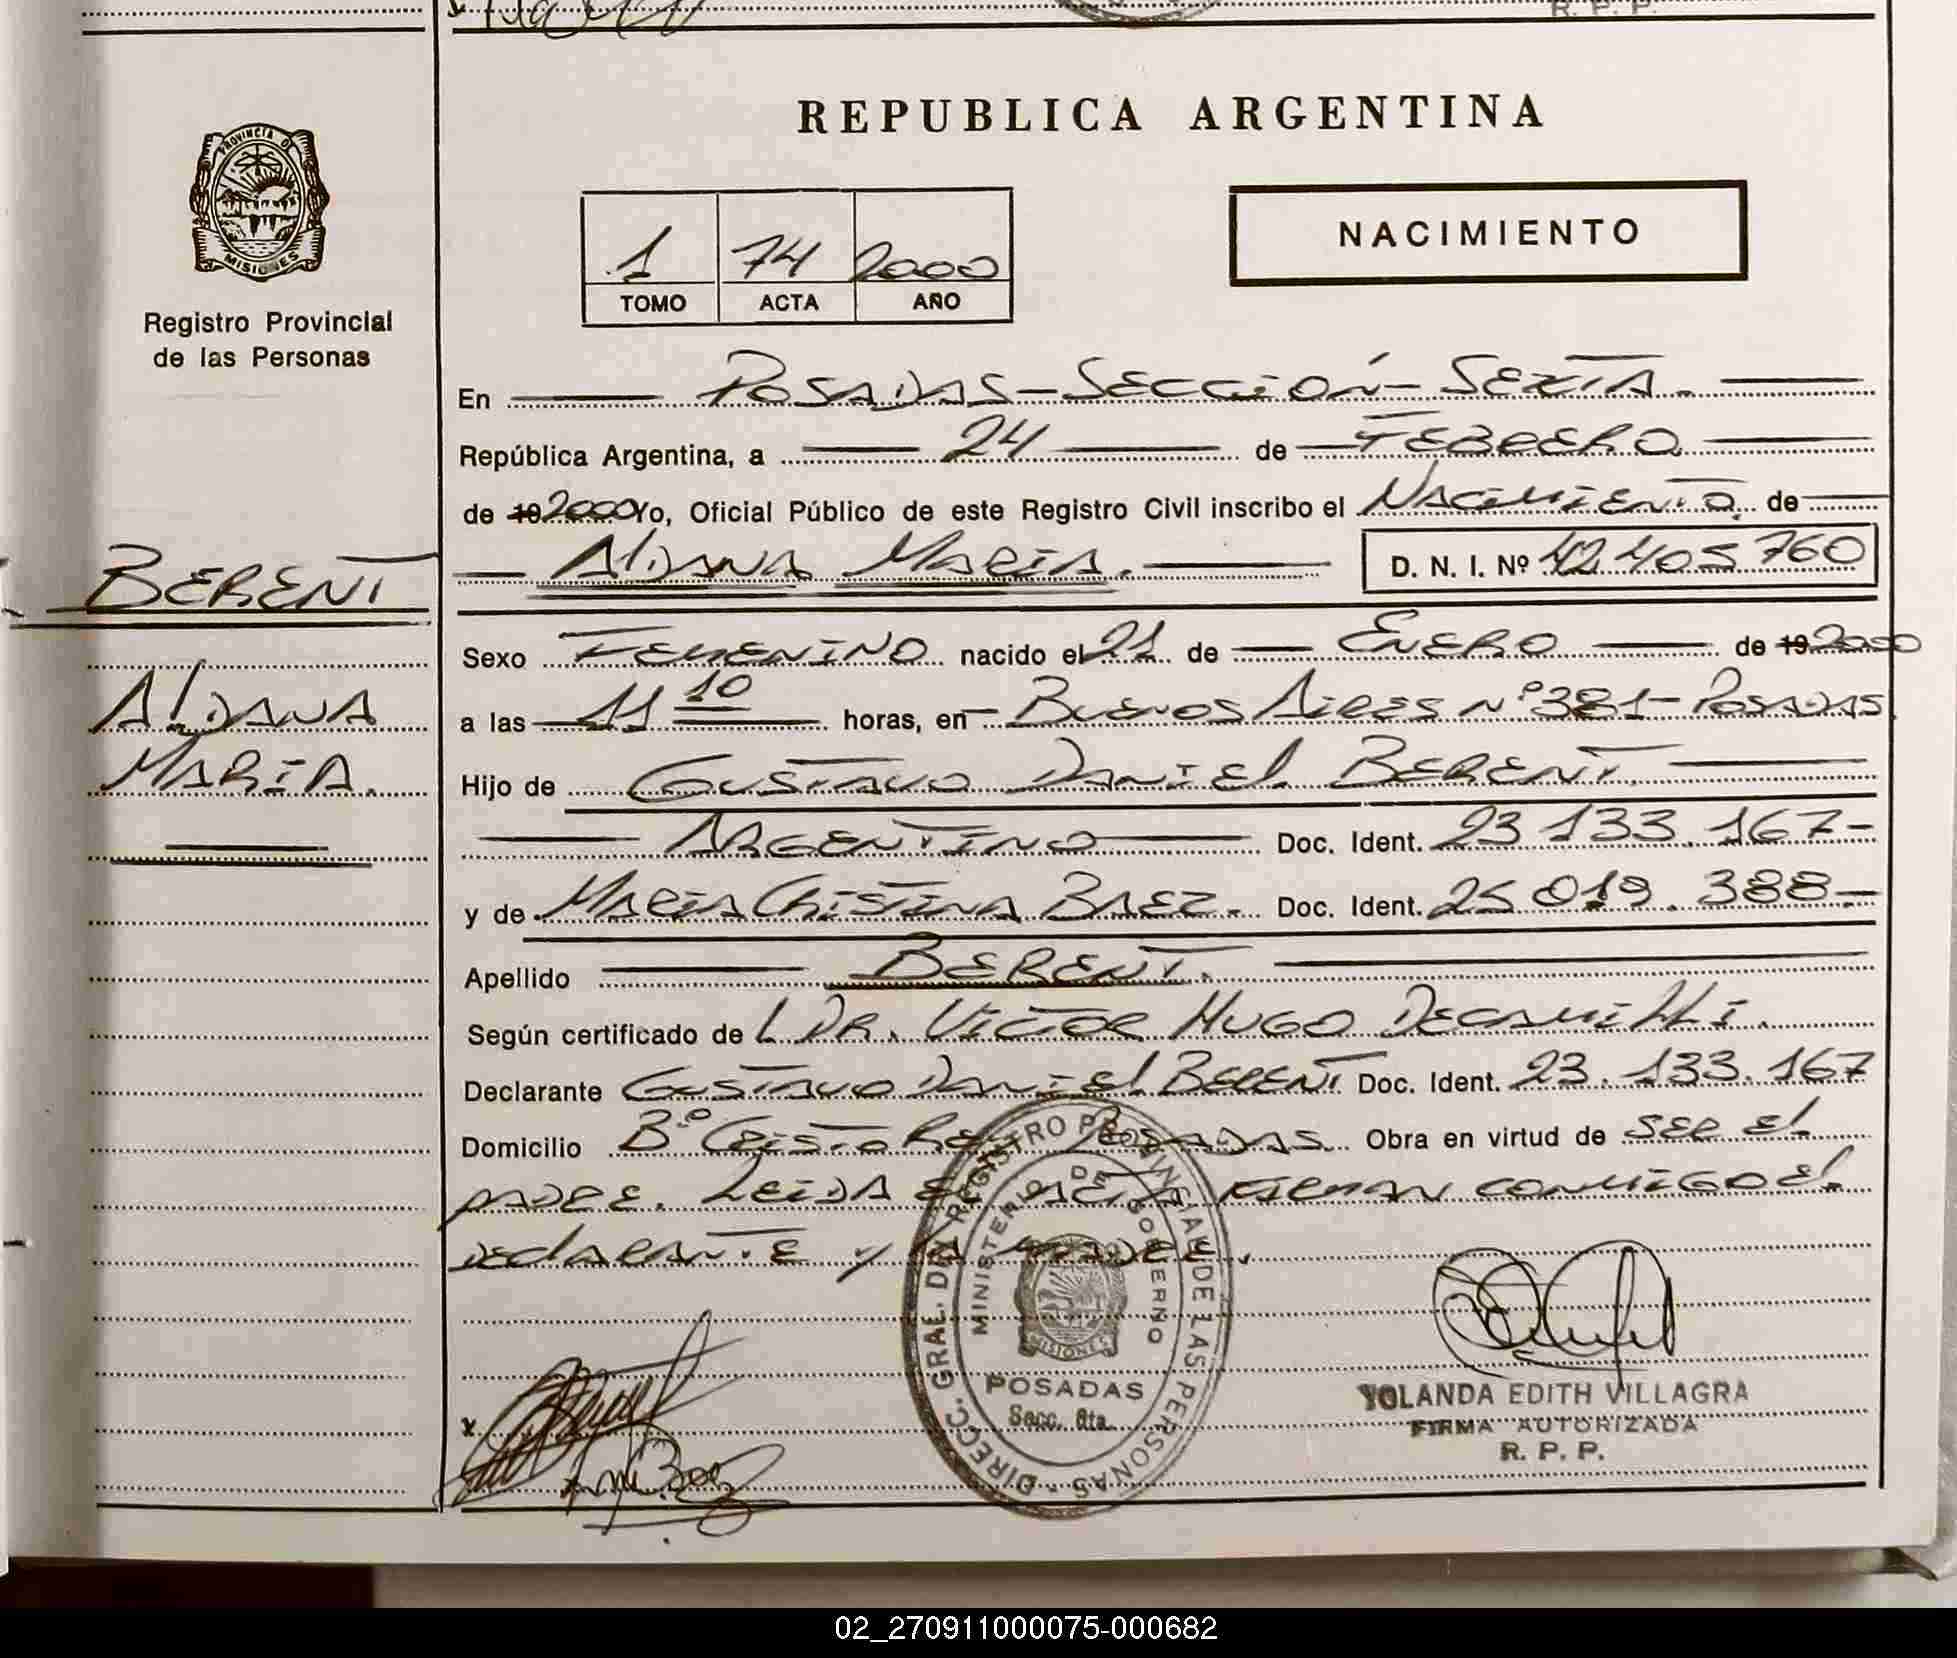 R. P. P.
REPUBLICA ARGENTINA
PROVINCIA D
MISIONES
Registro Provincial
de las Personas
1 74 2000
TOMO ACTA AÑO
NACIMIENTO
En POSADAS-SECCIÓN-SEXTA.
República Argentina, a 24 de FEBRERO
de 19 2000 Yo, Oficial Público de este Registro Civil inscribo el NACIMIENTO de
BERENT
AldANA MARIA. D. N. I. Nº 42.405.760
Sexo FEMENINO nacido el 21 de ENERO de 19 2000
AldANA
MARIA.
a las 11 10 horas, en BUENOS AIRES Nº 381-POSADAS
Hijo de GUSTAVO DANIEL BERENT.
ARGENTINO Doc. Ident. 23 133.167-
y de MARIA CRISTINA BAEZ. Doc. Ident. 25 019.388-
Apellido BERENT.
Según certificado de L DR. VICTOR HUGO DECAMILLI.
Declarante GUSTAVO DANIEL BERENT Doc. Ident. 23.133.167
Domicilio Bº CRISTO REY POSADAS. Obra en virtud de SER El
PADRE. LEIDA El ACTA FIRMAN CONMIGO El
DEClARANTE y lA MADRE.
DIRECC. GRAL. DEL REGISTRO PROVINCIAL DE LAS PERSONAS
MINISTERIO DE GOBIERNO
MISIONES
POSADAS
Secc. 6ta.
YOLANDA EDITH VILLAGRA
FIRMA AUTORIZADA
R. P. P.
02_270911000075-000682